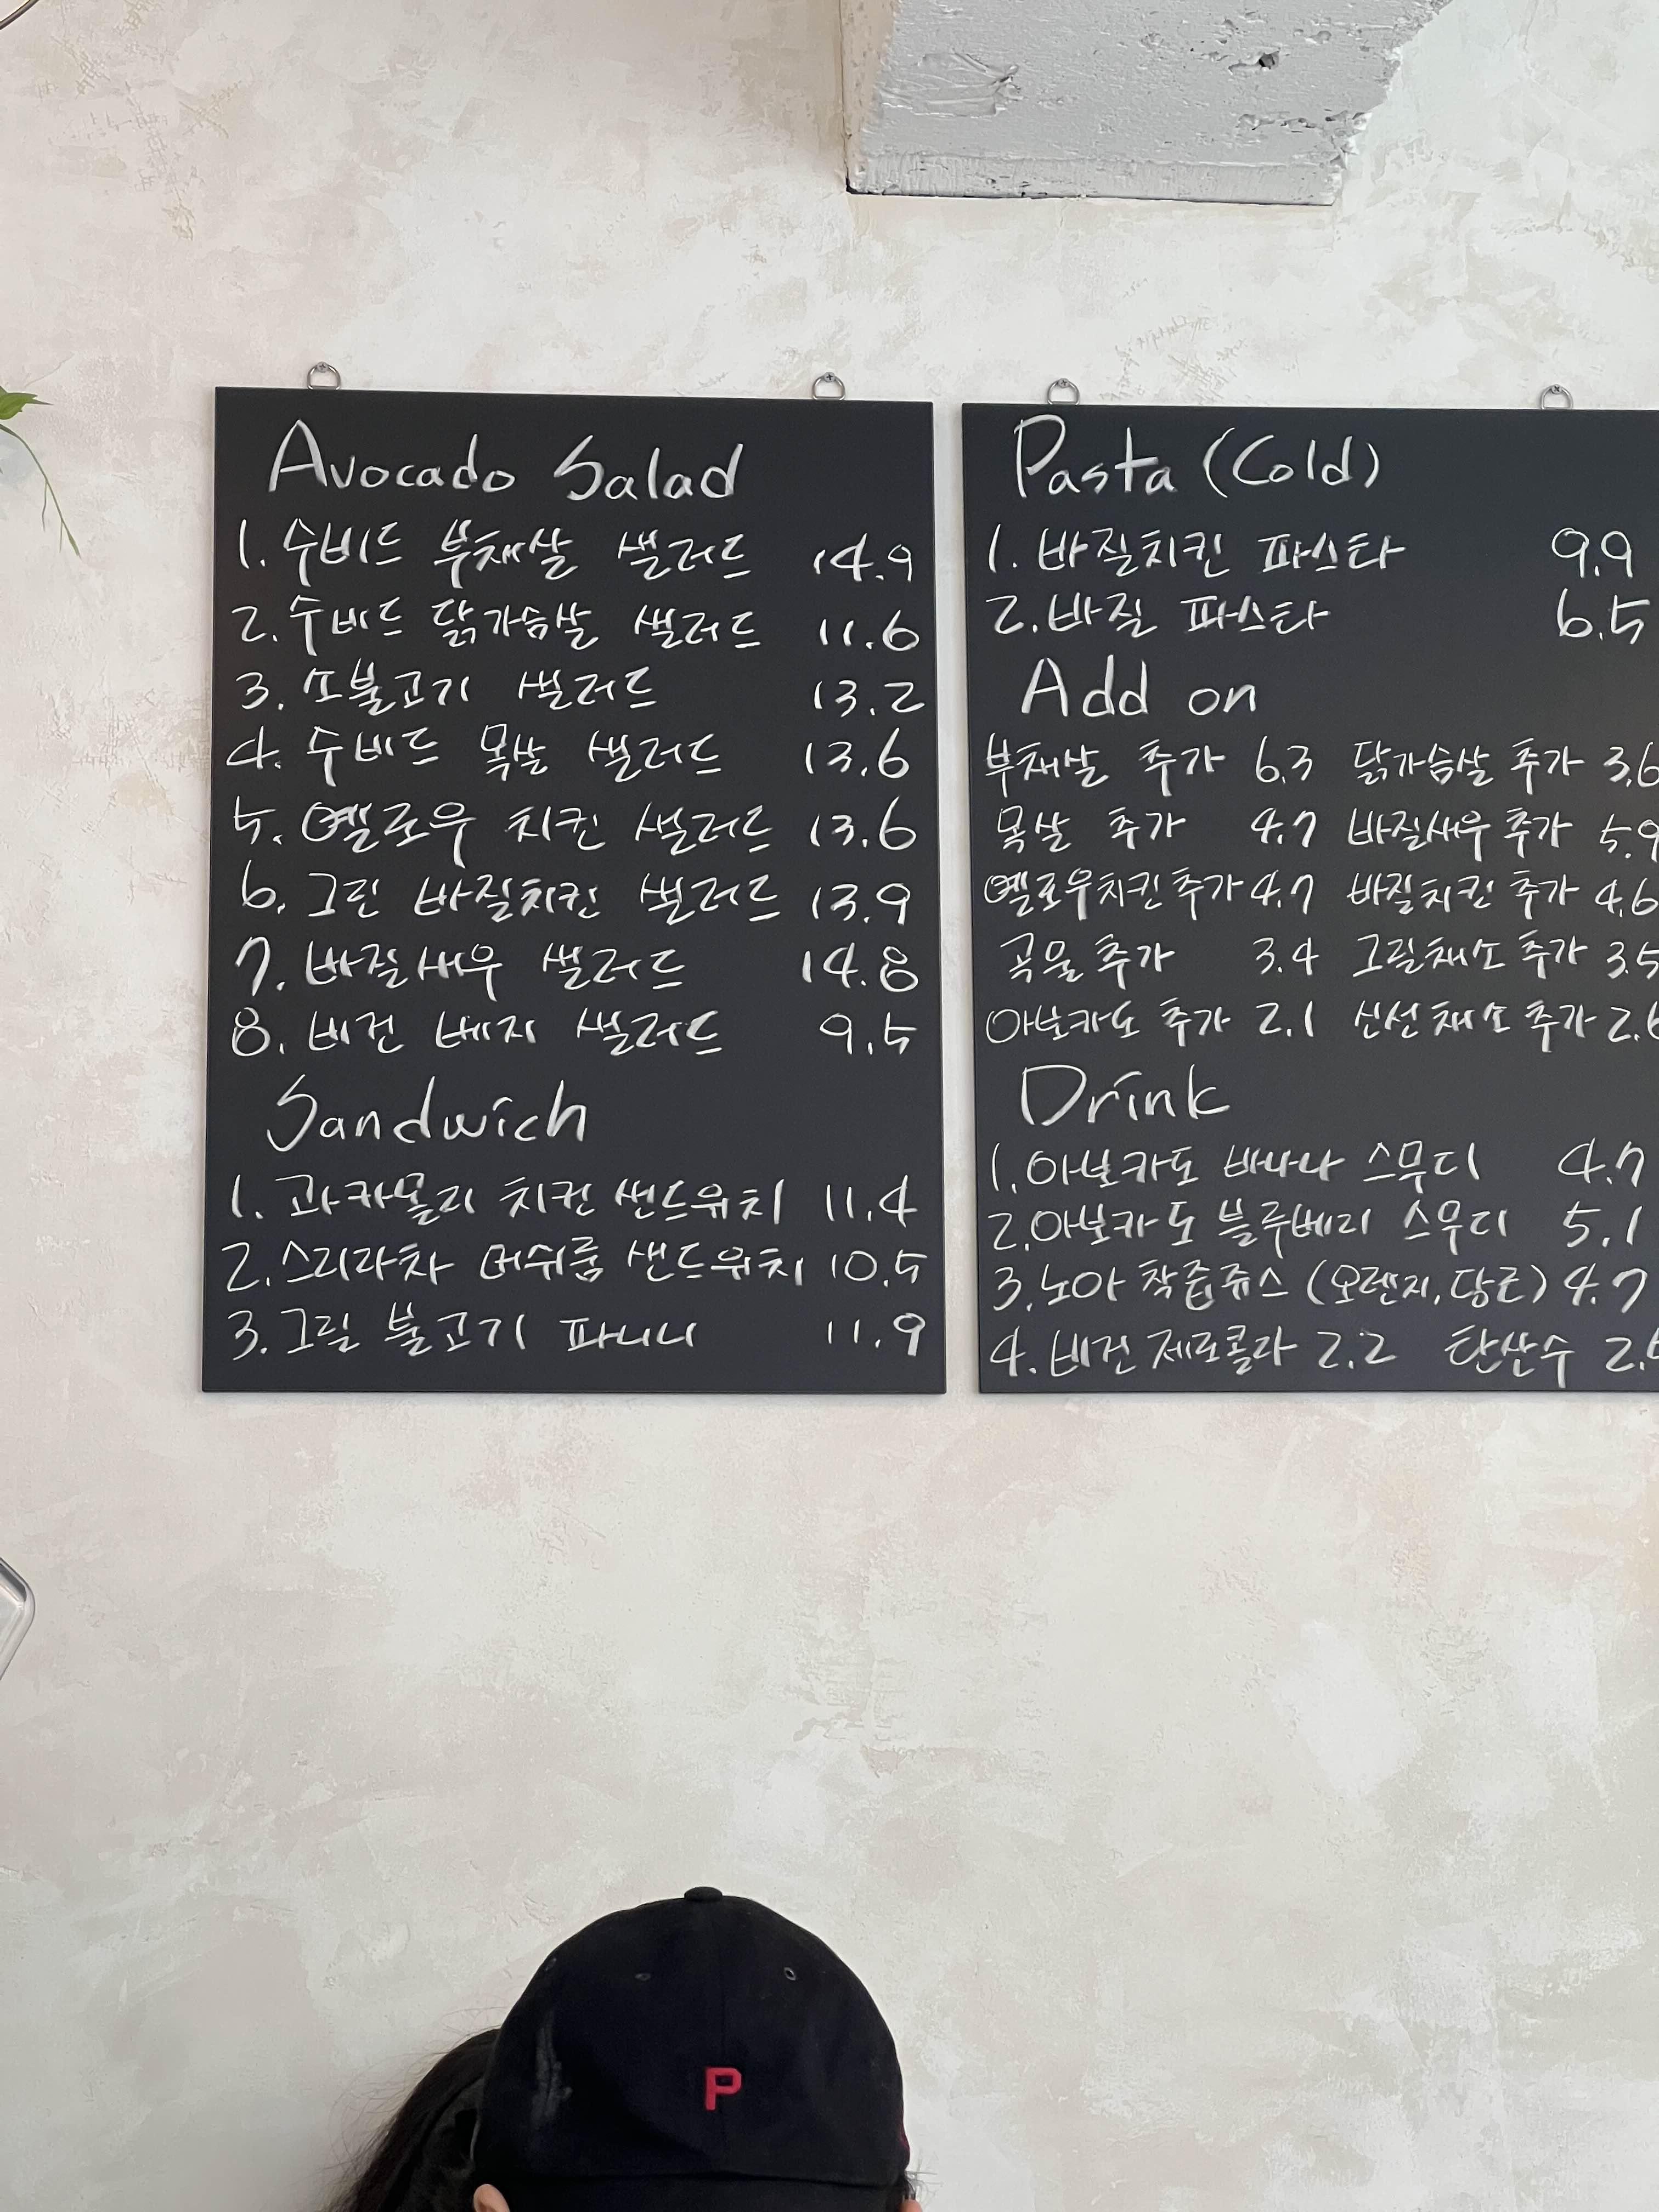 Avocado Salad
1. 수비드 부채살 샐러드 14.9
2. 수비드 닭가슴살 샐러드 11.6
3. 소불고기 샐러드 13.2
4. 수비드 목살 샐러드 13.6
5. 옐로우 치킨 샐러드 13.6
6. 그린 바질치킨 샐러드 13.9
7. 바질새우 샐러드 14.8
8. 비건 베지 샐러드 9.5
Sandwich
1. 과카몰리 치킨 샌드위치 11.4
2. 스리라차 머쉬룸 샌드위치 10.5
3. 그릴 불고기 파니니 11.9
Pasta (Cold)
1. 바질치킨 파스타 9.9
2. 바질 파스타 6.5
Add on
부채살 추가 6.3 닭가슴살 추가 3.6
목살 추가 4.7 바질새우 추가 5.9
옐로우치킨 추가 4.7 바질치킨 추가 4.6
곡물 추가 3.4 그릴채소 추가 3.5
아보카도 추가 2.1 신선채소 추가
Drink
1. 아보카도 바나나 스무디 4.7
2. 아보카도 블루베리 스무디 5.1
3. 노아 착즙쥬스 (오렌지, 당근) 4.7
4. 비건 제로콜라 2.2 탄산수
P